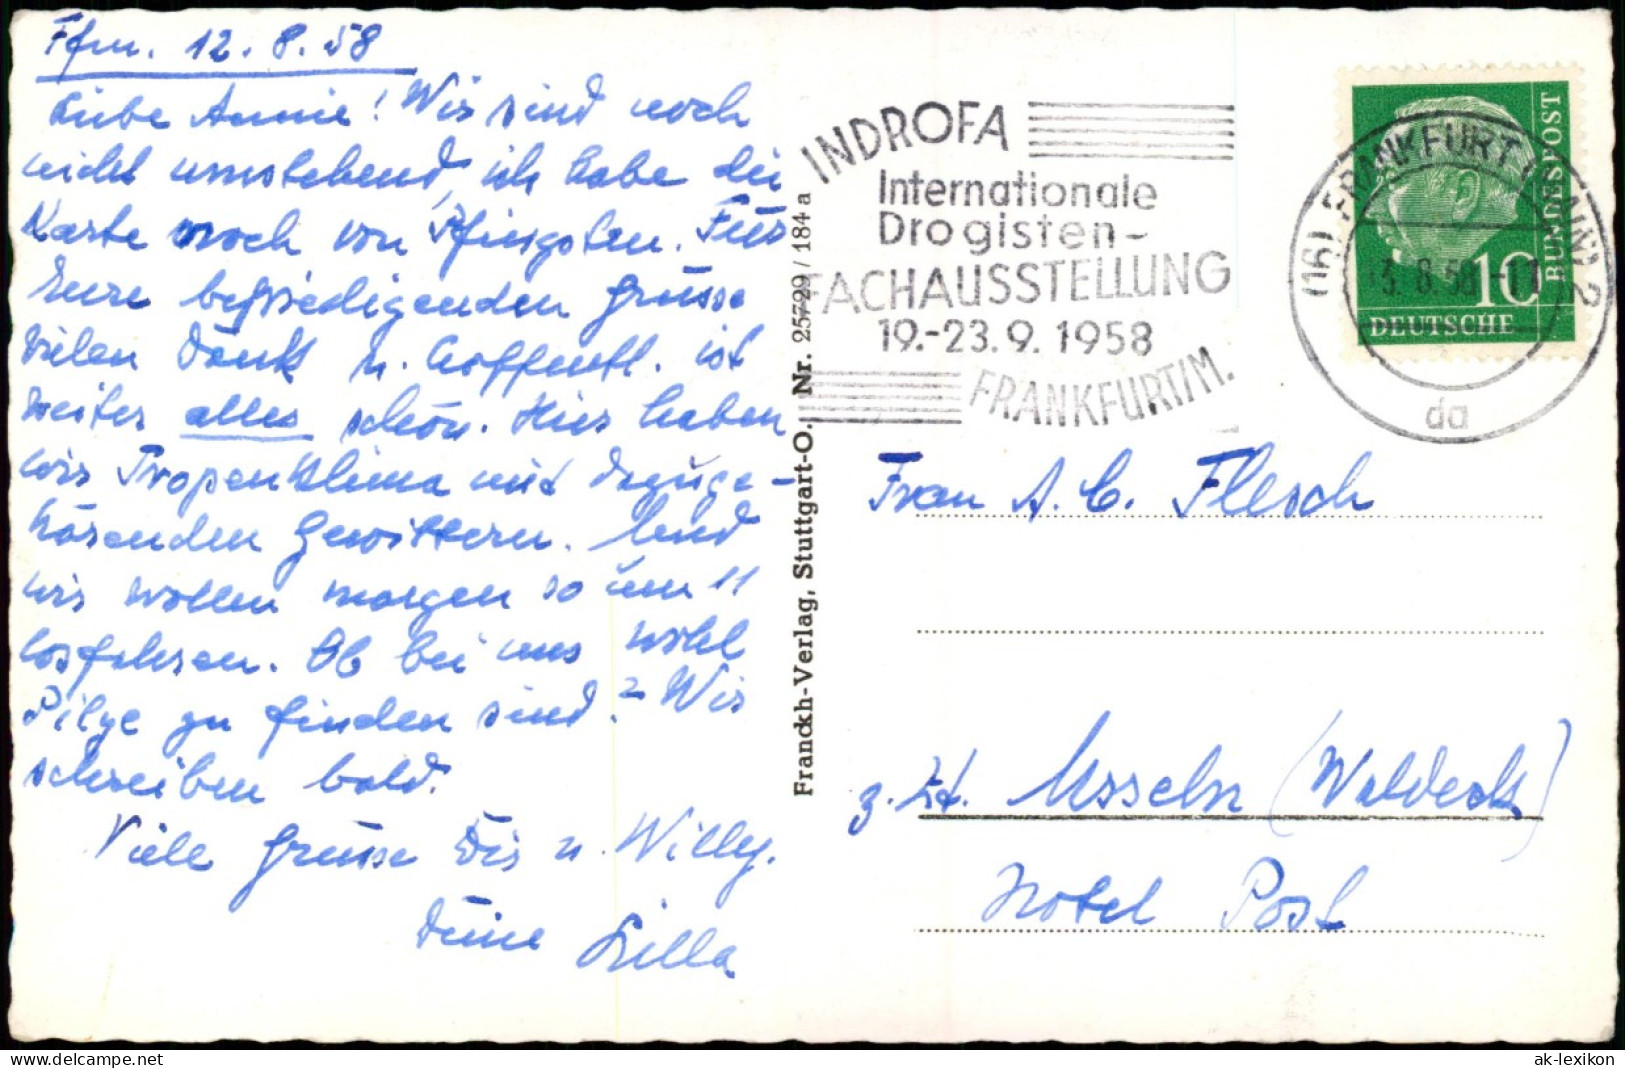 Ffm. 12.8.58
Liebe Annie! Wir sind noch
nicht umstehend, ich habe die
Karte noch von Pfingsten. Für
Eure befriedigenden Grüsse
vielen Dank u. hoffentl. ist
weiter alles schön. Hier haben
wir Tropenklima mit dazuge-
hörenden Gewittern. Und
wir wollen morgen so um 11
losfahren. Ob bei uns wohl
Pilze zu finden sind? Wir
schreiben bald.
Viele Grüsse Dir u. Willy.
Deine Lilla
Franckh-Verlag, Stuttgart-O. Nr. 25729 / 184 a
INDROFA
Internationale
Drogisten-
FACHAUSSTELLUNG
19.-23.9.1958
FRANKFURT/M.
(16) FRANKFURT (MAIN) 2
8.58
da
10
DEUTSCHE
BUNDESPOST
Frau A. C. Flesch
z. Zt. Usseln (Waldeck)
Hotel Post
delcampe.net
ak-lexikon